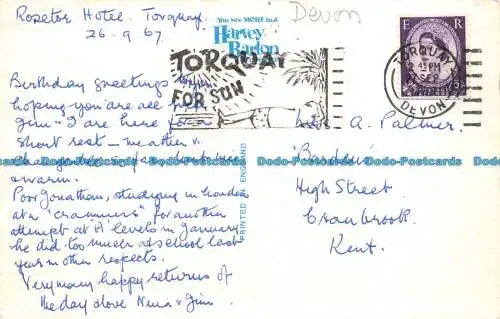 Rosetor Hotel. Torquay.
26.9.67
Birthday greetings
hoping you are all
Jim & I are here for a
short rest - weather v.
& warm.
Poor Jonathan, studying in London
at a "crammers" for another
attempt at 'A' levels in January
he did too much at school last
year in other respects.
Very many happy returns of
the day & love Nina & Jim
Devon
You see MORE in a
Harvey
Barton
TORQUAY
FOR SUN
PRINTED IN ENGLAND
E R
TORQUAY
PM
SEP
DEVON
A. Palmer.
High Street
Cranbrook.
Kent.
Dodo-Postcards Dodo-Postcards Dodo-Postcards Dodo-Postcards Dodo-Postcards